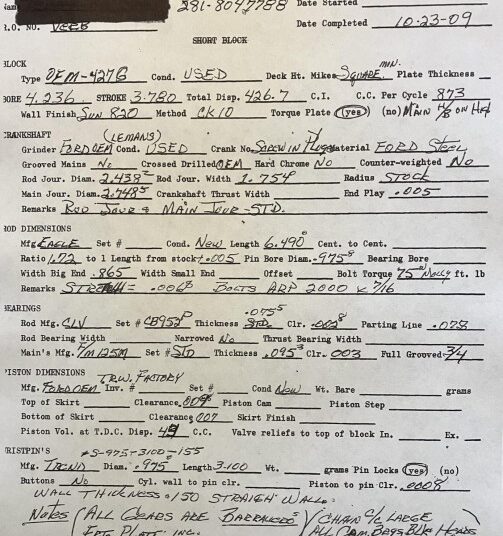 281-8047788 Date Started
R.O. NO. Date Completed 10-23-09
SHORT BLOCK
BLOCK
Type OEM-427G Cond. USED Deck Ht. Mikes Square min. Plate Thickness
BORE 4.236 STROKE 3.780 Total Disp. 426.7 C.I. C.C. Per Cycle 873
Wall Finish Sun 820 Method CK10 Torque Plate (yes) (no) Main H/B on H/B
CRANKSHAFT (LEMANS)
Grinder FORD OEM Cond. USED Crank No. Screw in Plugs Material FORD Steel
Grooved Mains No Crossed Drilled OEM Hard Chrome No Counter-weighted No
Rod Jour. Diam. 2.438 Rod Jour. Width 1.754 Radius STOCK
Main Jour. Diam. 2.7485 Crankshaft Thrust Width End Play .005
Remarks Rod Jour & Main Jour-STD.
ROD DIMENSIONS
Mfg. EAGLE Set # Cond. New Length 6.490 Cent. to Cent.
Ratio 1.72 to 1 Length from stock +.005 Pin Bore Diam. .975 Bearing Bore
Width Big End .865 Width Small End Offset Bolt Torque 75 Molly ft. lb
Remarks STRETCH = .0068 BOLTS ARP 2000 x 7/16
BEARINGS .0755
Rod Mfg. CLV Set # CB952P Thickness STD. Clr. .0028 Parting Line .078
Rod Bearing Width Narrowed No Thrust Bearing Width
Main's Mfg. 7m125M Set # STD Thickness .095 Clr. .003 Full Grooved 3/4
PISTON DIMENSIONS T.R.W. FACTORY
Mfg. FORD OEM Inv. # Set # Cond New Wt. Bare grams
Top of Skirt Clearance .009 Piston Cam Piston Step
Bottom of Skirt Clearance .007 Skirt Finish
Piston Vol. at T.D.C. Disp. C.C. Valve reliefs to top of block In. Ex.
WRISTPIN'S #S-975-3100-155
Mfg. TREND Diam. .975 Length 3.100 Wt. grams Pin Locks (yes) (no)
Buttons No Cyl. wall to pin clr. Piston to pin Clr. .0008
WALL THICKNESS .150 STRAIGHT WALL.
Notes (ALL GEARS ARE (CHAIN C/C LARGE